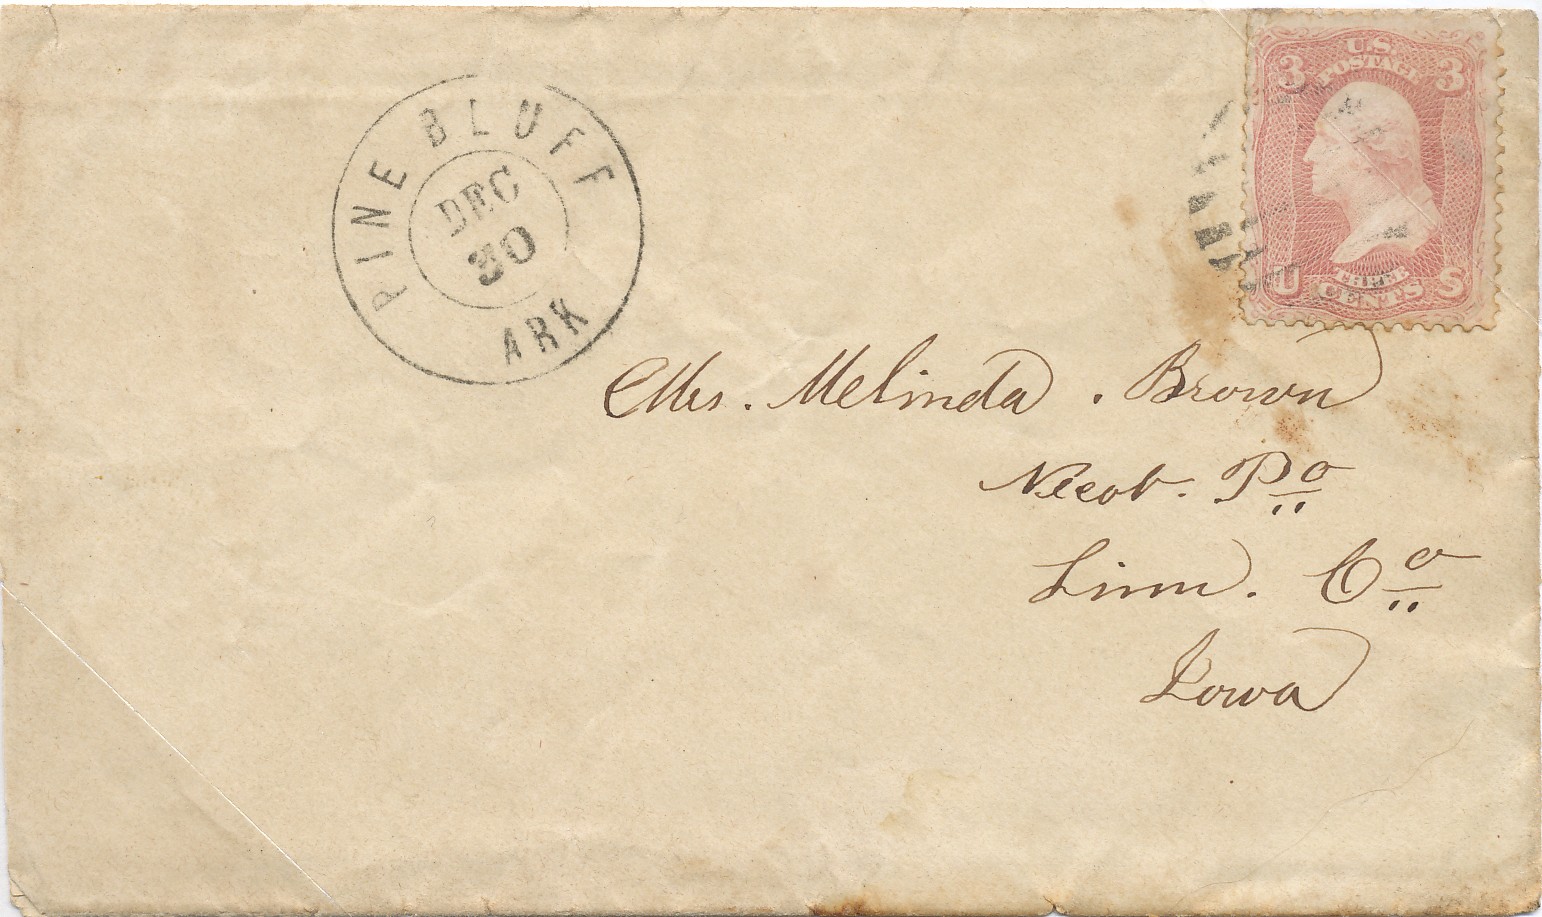 PINE BLUFF
DEC
30
ARK
U.S.
POSTAGE
3 3
THREE
CENTS
U S
Mrs. Melinda. Brown
Po
Linn. Co
Iowa